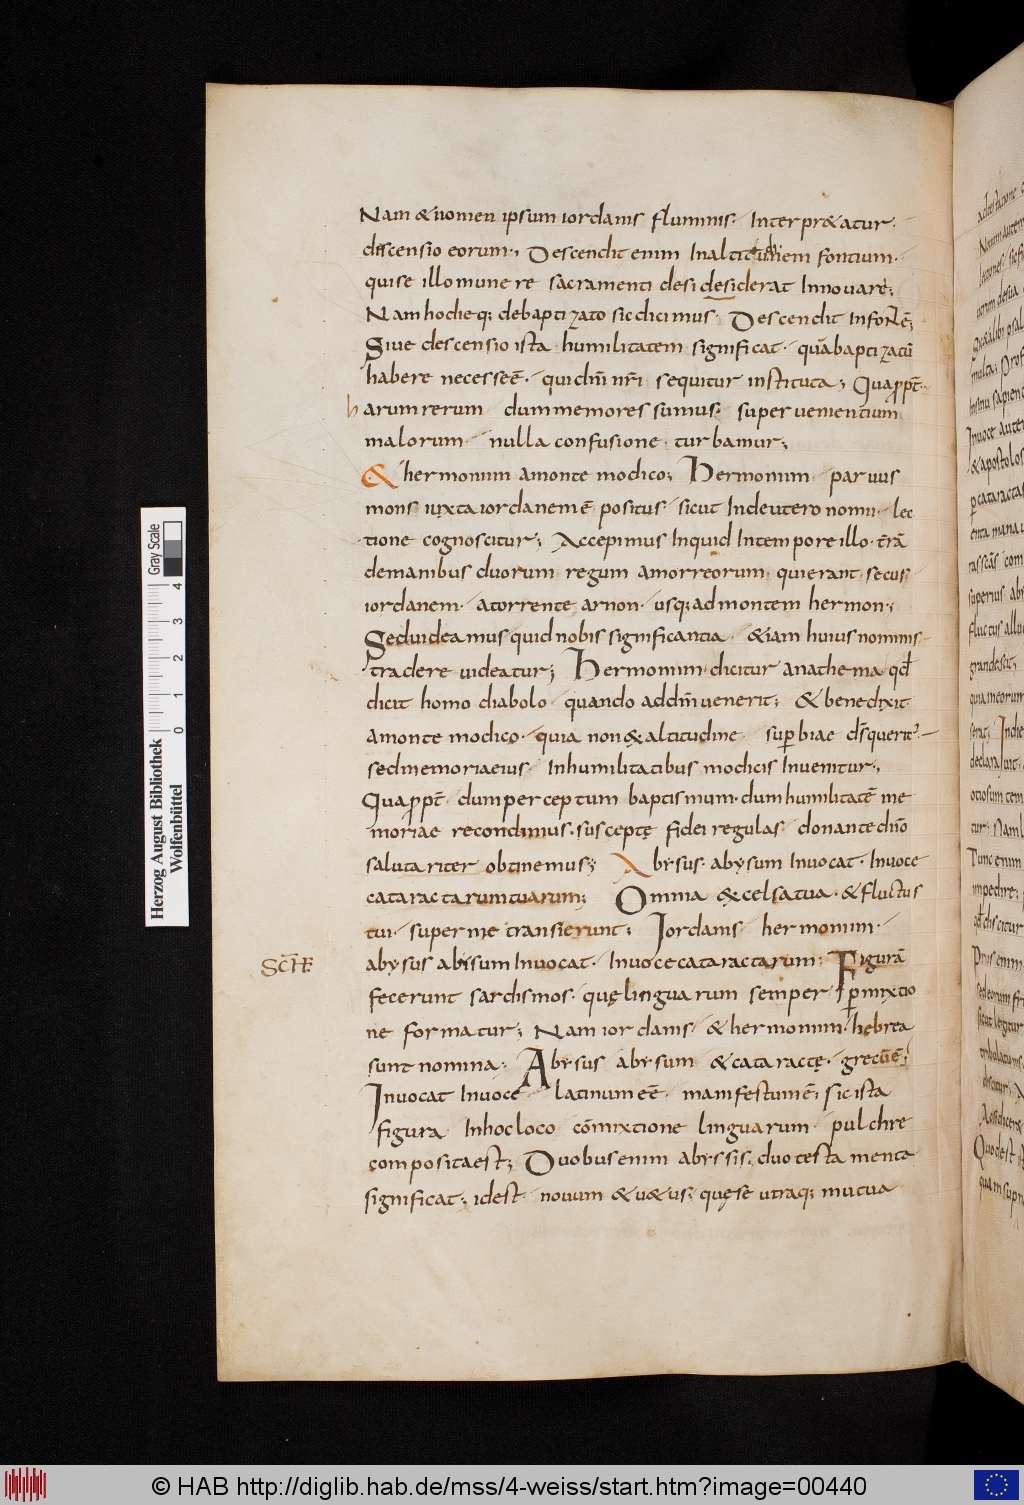 Nam & nomen ipsum iordanis fluminis· Interpr&atur·
discensio eorum·, Descendit enim Inaltitudinem fontium·
quise illo munere sacramenti desi desiderat Innouare;
Nam hodieq; debaptizato sic dicimus· Descendit Infontē;
Siue descensio ista humilitatem significat· quābaptizatū
habere necesseē· quidn̄i nr̄i sequitur instituta; Quaꝓpt̄·
harum rerum dum memores sumus· superuenientium
malorum· nulla confusione· turbamur;
& hermonum amonte modico; Hermonum paruus
mons iuxta iordanemē positus· sicut Indeuteronomii· lec
tione cognoscitur; Accepimus Inquid Intempore illo· t̄rā
demanibus duorum regum amorreorum· quierant secus
iordanem· atorrente arnon· usq; admontem hermon·;
Seduideamus quid nobis significantia· &iam huius nominis
tradere uideatur; Hermonim dicitur anathema qđ
dicit homo diabolo· quando addn̄m uenerit; & benedixit
amonte modico· quia non &altitudine· suꝑbiae ds̄ querit᷒
sed memoriaeius· Inhumilitatibus modicis Inuenitur·,
Quaꝓpt̄· dum perceptum baptismum· dum humilitatē me
moriae recondimus· susceptę fidei regulas· donante dn̄o
salutariter obtinemus;
Abyssus· abysum Inuocat· Inuoce
cataractarum tuarum; Omnia excelsa tua· & fluctus
tui· super me transierunt; Iordanis hermonim·
SCHE
abysus abisum Inuocat· Inuoce cataractarum; Figurā
fecerunt sardismos· quę linguarum semper ꝑmixtio
ne formatur; Nam iordanis & hermonim· hebrea
sunt nomina; Abyssus abysum & cataractę· grecūē;
Inuocat Inuoce latinum eē· manifestumē; sic ista
figura Inhoc loco cōmixtione linguarum pulchre
composita est; Duobus enim abyssis· duo testamenta
significat; idest nouum & u&us; quęse utraq; mutua
Herzog August Bibliothek
Wolfenbüttel
0 1 2 3 4
Gray Scale
© HAB http://diglib.hab.de/mss/4-weiss/start.htm?image=00440